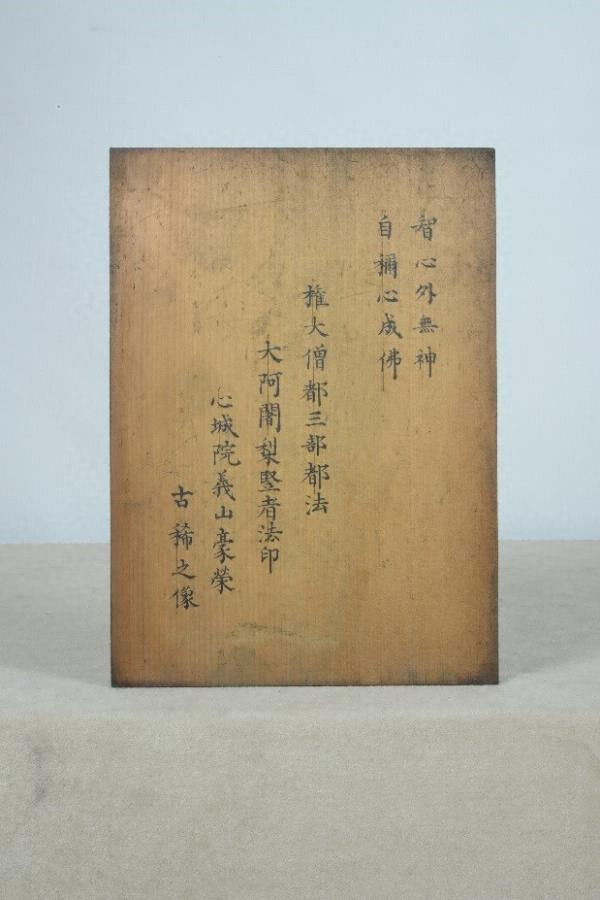 智心外無神
自稱心成佛
權大僧都三部都法
大阿闍梨竪者法印
心城院義山豪榮
古稀之像